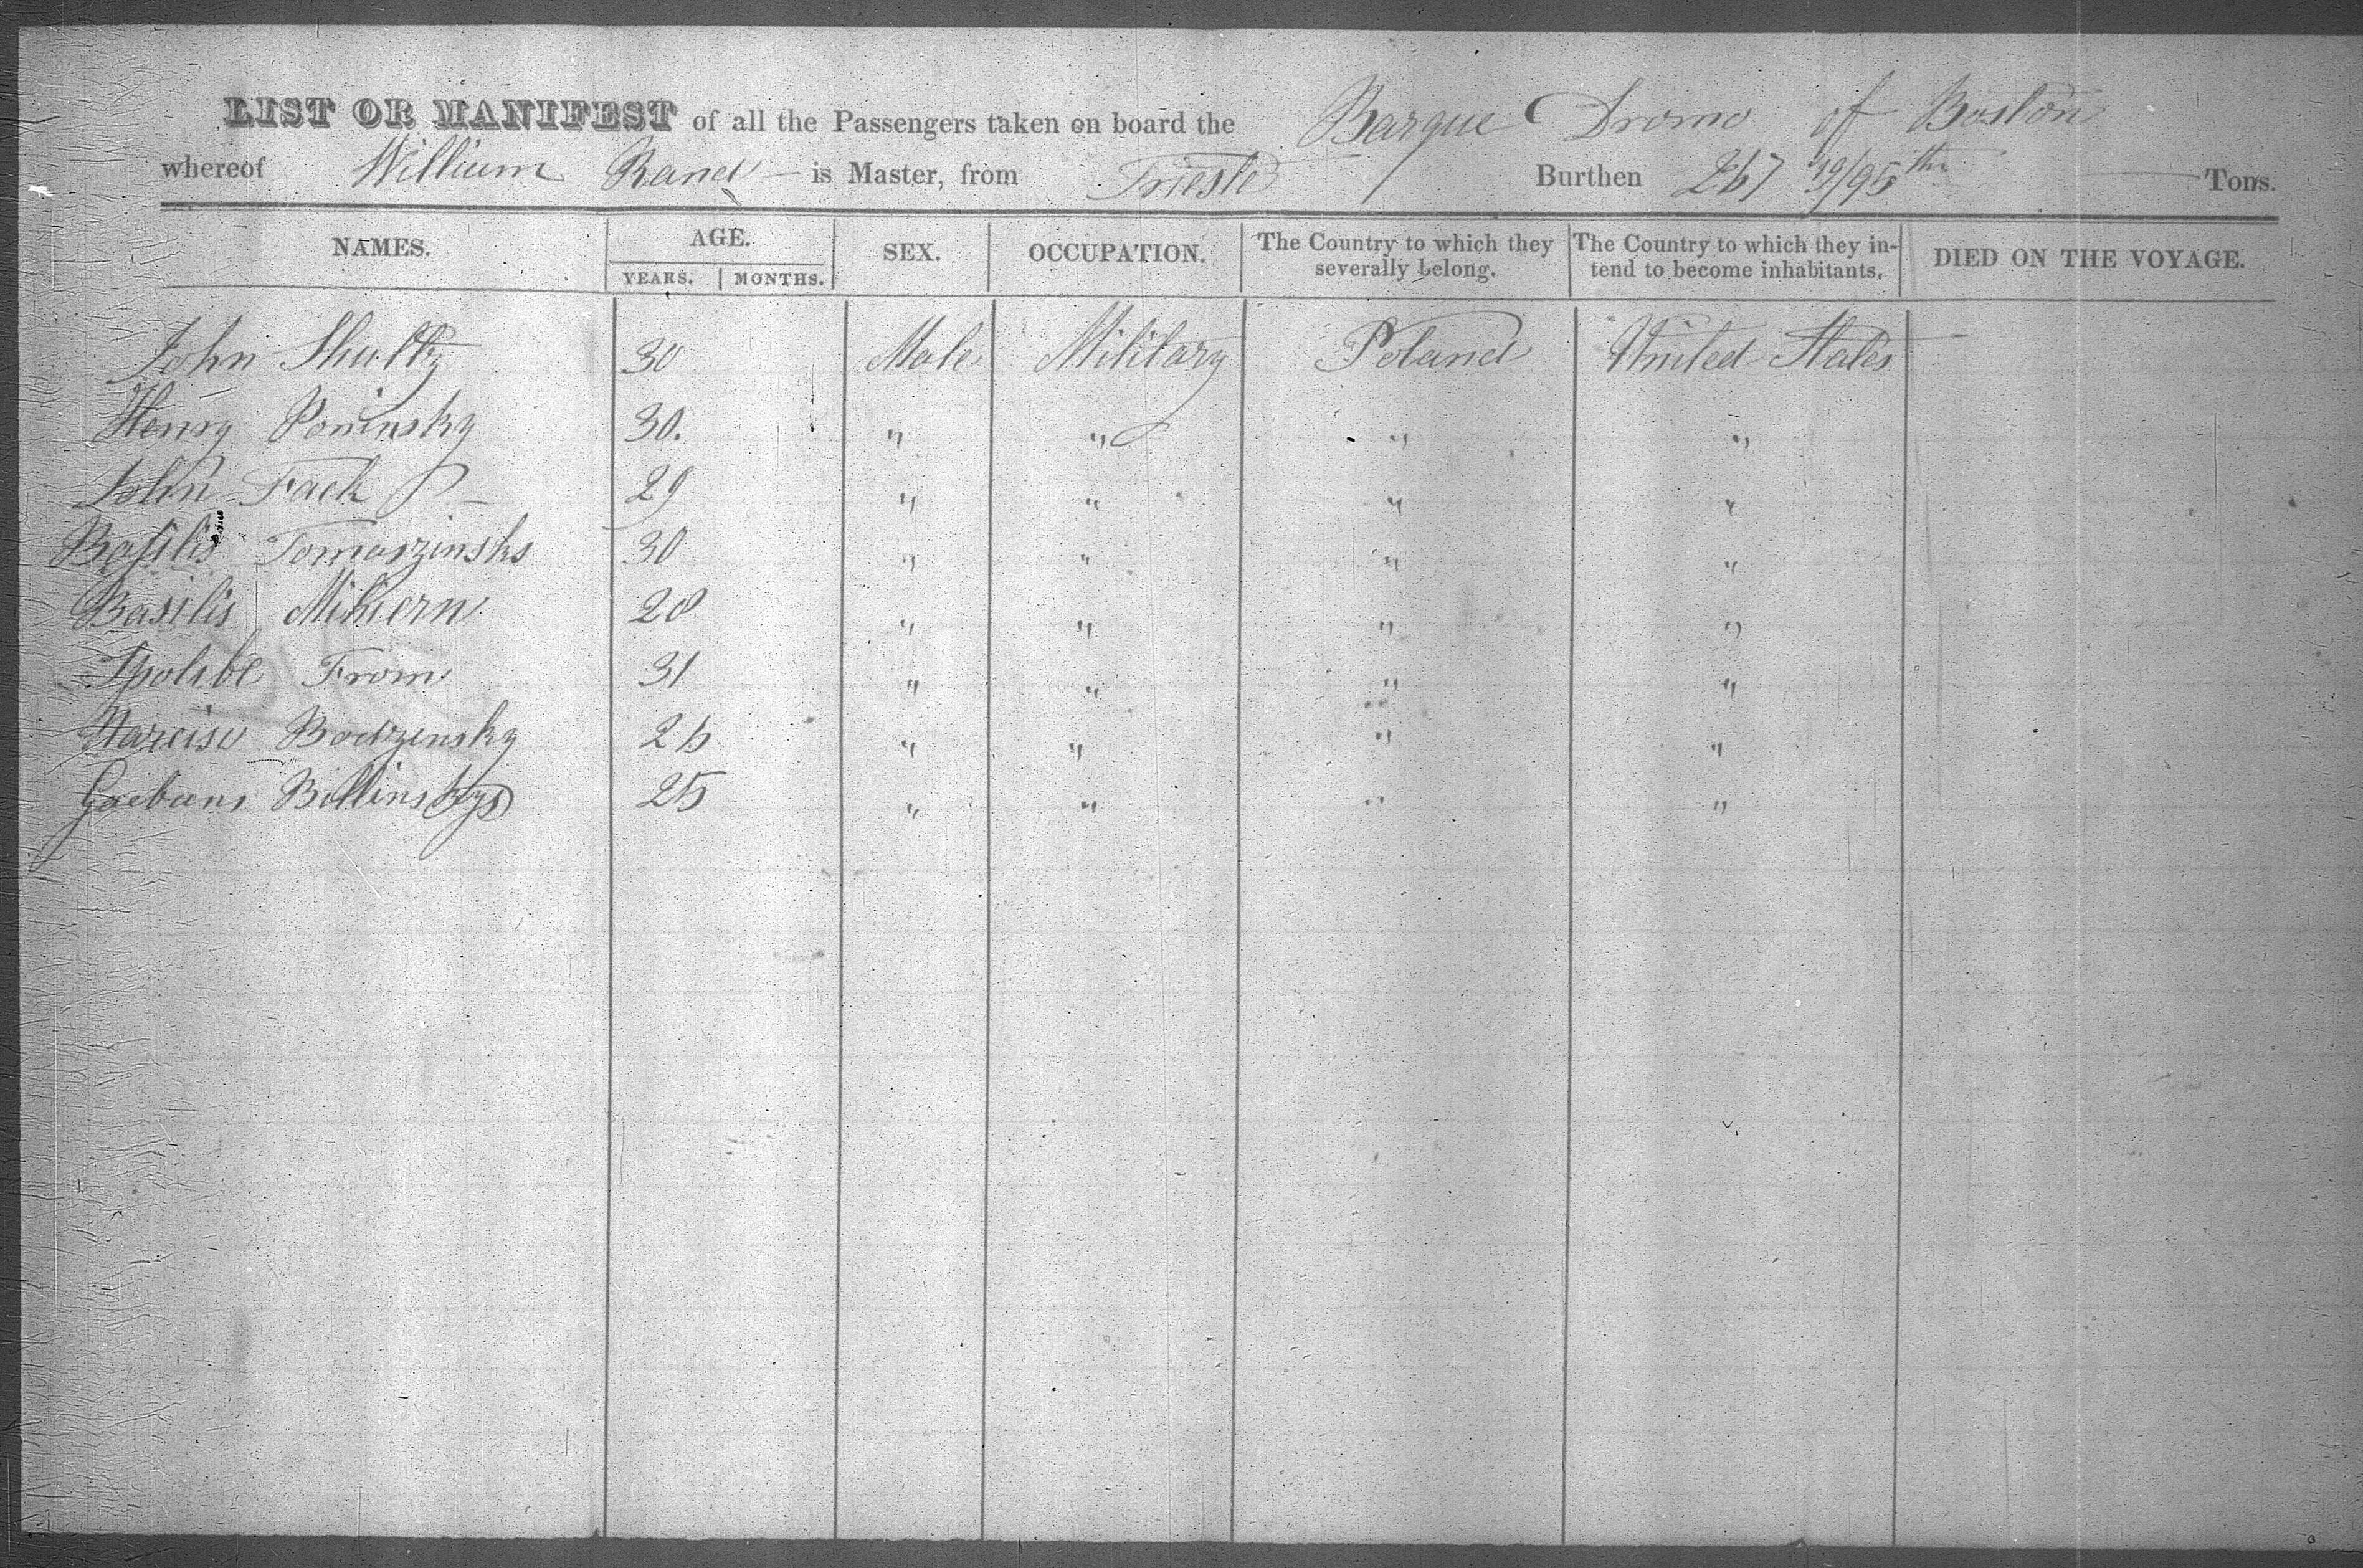 LIST OR MANIFEST of all the Passengers taken on board the Barque Dromo of Boston
whereof William Rand is Master, from Trieste Burthen 267 19/95ths Tons.
NAMES. AGE. SEX. OCCUPATION. The Country to which they severally belong. The Country to which they intend to become inhabitants. DIED ON THE VOYAGE.
YEARS. MONTHS.
John Shultz 30 Male Military Poland United States
Henry Poninsky 30. " " " "
John Fack 29 " " " "
Basilis Tomaszinsks 30 " " " "
Basilis Mihiern 28 " " " "
Ipolibe From 31 " " " "
Narciso Bodzensky 26 " " " "
Billinskys 25 " " " "